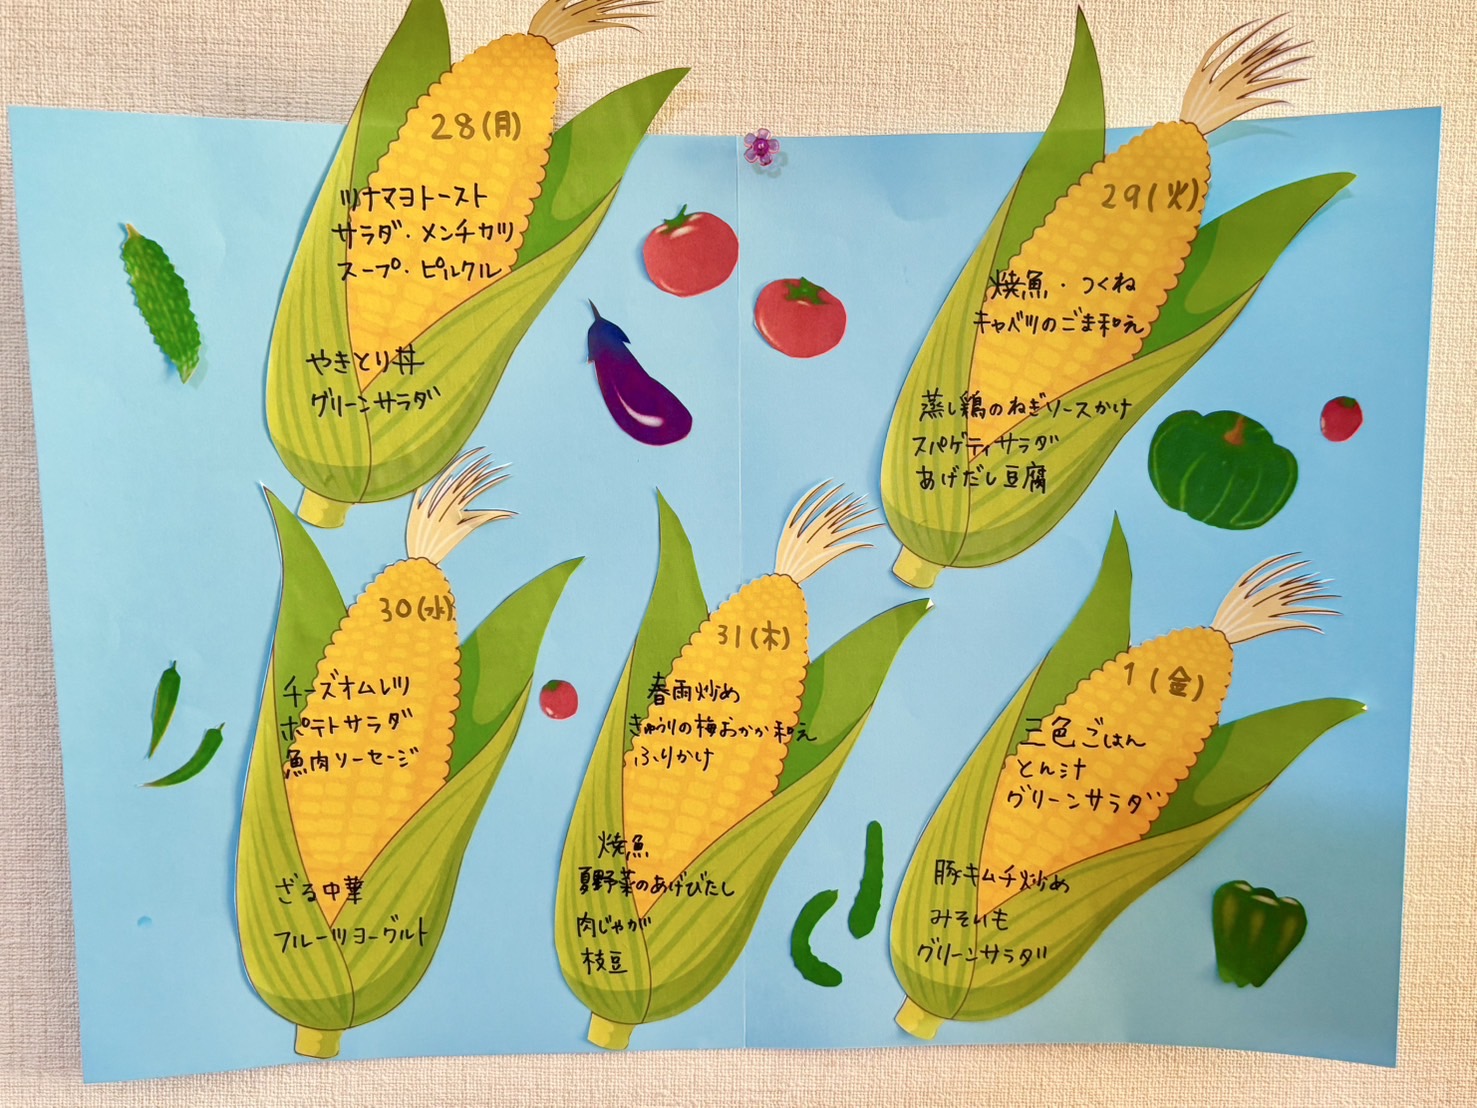 28(月)
ツナマヨトースト
サラダ・メンチカツ
スープ・ピルクル
やきとり丼
グリーンサラダ
29(火)
焼魚・つくね
キャベツのごま和え
蒸し鶏のねぎソースかけ
スパゲティサラダ
あげだし豆腐
30(水)
チーズオムレツ
ポテトサラダ
魚肉ソーセージ
ざる中華
フルーツヨーグルト
31(木)
春雨炒め
きゅうりの梅おかか和え
ふりかけ
焼魚
夏野菜のあげびたし
肉じゃが
枝豆
1(金)
三色ごはん
とん汁
グリーンサラダ
豚キムチ炒め
みそいも
グリーンサラダ